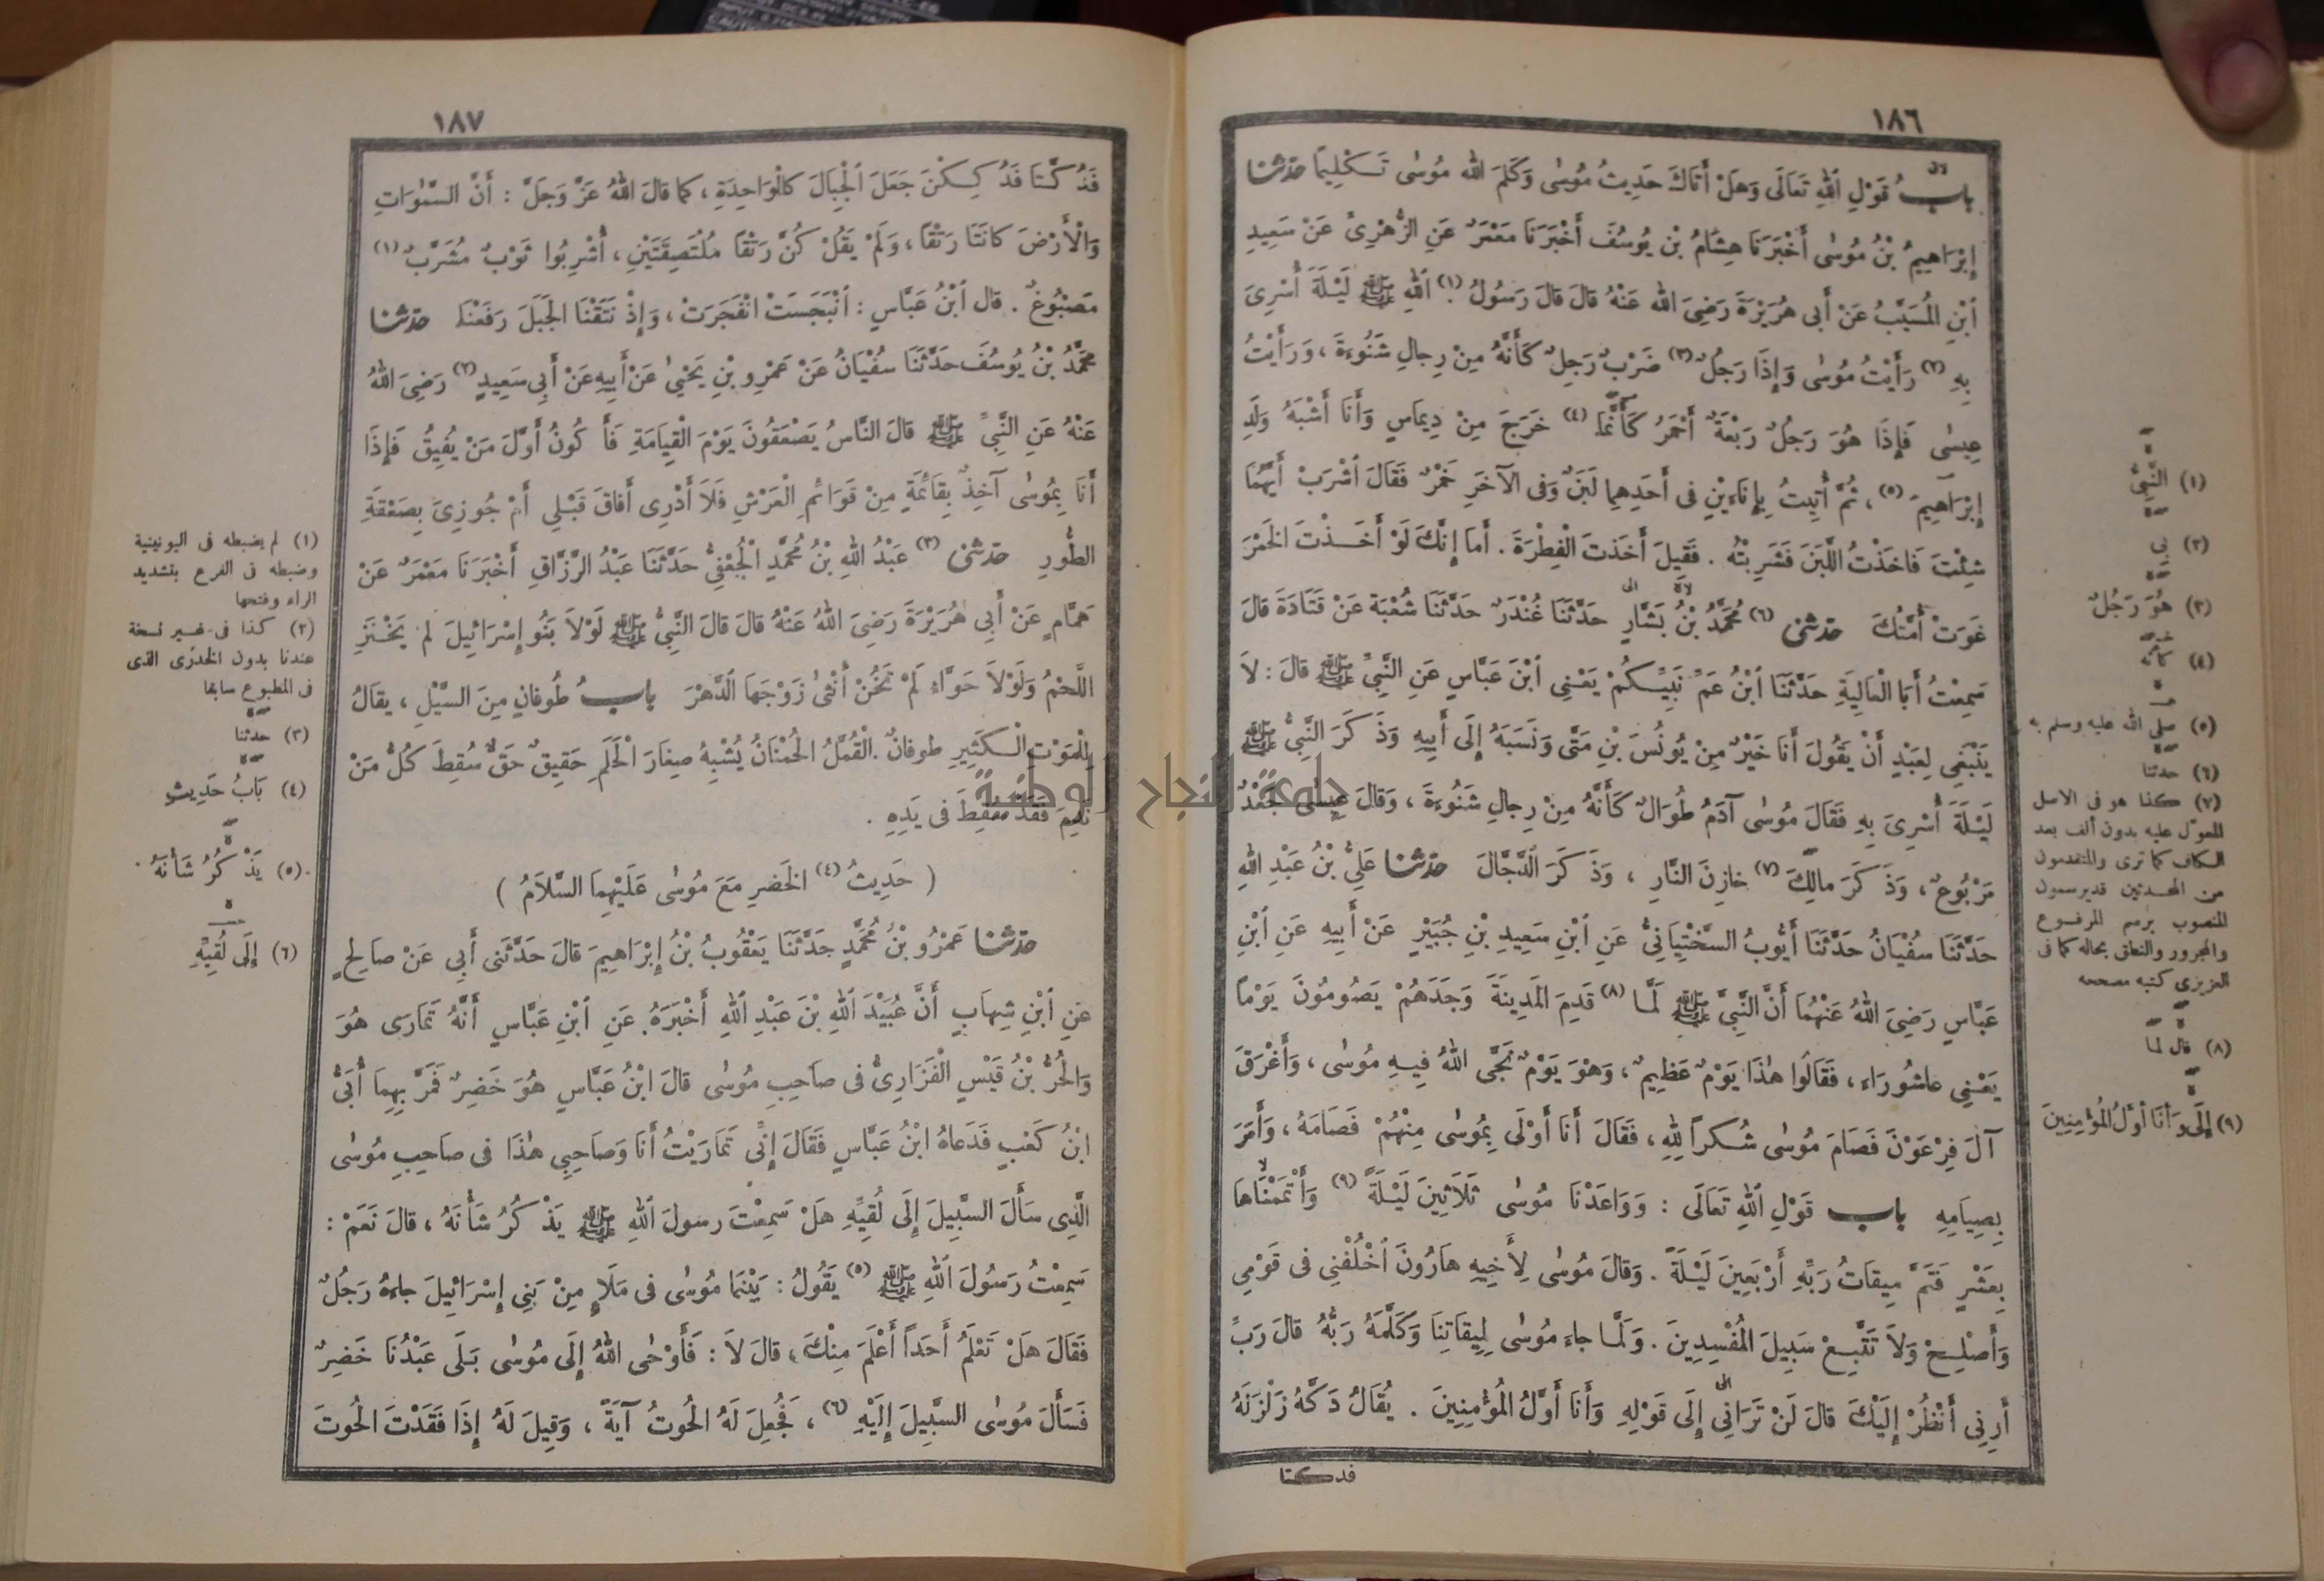 ١٨٦
باب قَوْلِ اللهِ تَعَالَى وَهَلْ أَتَاكَ حَدِيثُ مُوسٰى وَكَلَّمَ اللهُ مُوسٰى تَكْلِيمًا حدثنا
إِبْرَاهِيمُ بْنُ مُوسٰى أَخْبَرَنَا هِشَامُ بْنُ يُوسُفَ أَخْبَرَنَا مَعْمَرٌ عَنِ الزُّهْرِىِّ عَنْ سَعِيدِ
ابْنِ الْمُسَيَّبِ عَنْ أَبِى هُرَيْرَةَ رَضِىَ اللهُ عَنْهُ قالَ قالَ رَسُولُ (١) اللهِ ﷺ لَيْلَةَ أُسْرِىَ
بِهِ (٢) رَأَيْتُ مُوسٰى وَإِذَا رَجُلٌ (٣) ضَرْبٌ رَجِلٌ كَأَنَّهُ مِنْ رِجالِ شَنُوءَةَ ، وَرَأَيْتُ
عِيسٰى فَإِذَا هُوَ رَجُلٌ رَبْعَةٌ أَحْمَرُ كَأَنَّمَا (٤) خَرَجَ مِنْ دِيماسٍ وَأَنَا أَشْبَهُ وَلَدِ
إِبْرَاهِيمَ (٥) ، ثُمَّ أُتِيتُ بِإِنَاءَيْنِ فى أَحَدِهِما لَبَنٌ وَفى الآخَرِ خَمْرٌ فَقَالَ اشْرَبْ أَيَّهُمَا
شِئْتَ فَأَخَذْتُ اللَّبَنَ فَشَرِبْتُهُ . فَقِيلَ أَخَذْتَ الْفِطْرَةَ . أَما إِنَّكَ لَوْ أَخَذْتَ الخَمْرَ
غَوَتْ أُمَّتُكَ حدثنى (٦) مُحَمَّدُ بْنُ بَشَّارٍ حَدَّثَنَا غُنْدَرٌ حَدَّثَنَا شُعْبَةُ عَنْ قَتَادَةَ قالَ
سَمِعْتُ أَبَا الْعَالِيَةِ حَدَّثَنَا ابْنُ عَمِّ نَبِيِّكُمْ يَعْنِى ابْنَ عَبَّاسٍ عَنِ النَّبِىِّ ﷺ قالَ : لاَ
يَنْبَغِى لِعَبْدٍ أَنْ يَقُولَ أَنَا خَيْرٌ مِنْ يُونُسَ بْنِ مَتَّى وَنَسَبَهُ إِلَى أَبِيهِ وَذَكَرَ النَّبِىُّ ﷺ
لَيْلَةَ أُسْرِىَ بِهِ فَقَالَ مُوسٰى آدَمُ طُوَالٌ كَأَنَّهُ مِنْ رِجالِ شَنُوءَةَ ، وَقالَ عِيسٰى جَعْدٌ
مَرْبُوعٌ ، وَذَكَرَ مالِكَ (٧) خازِنَ النَّارِ ، وَذَكَرَ الدَّجَّالَ حدثنا عَلِىُّ بْنُ عَبْدِ اللهِ
حَدَّثَنَا سُفْيَانُ حَدَّثَنَا أَيُّوبُ السَّخْتِيَانِىُّ عَنِ ابْنِ سَعِيدِ بْنِ جُبَيْرٍ عَنْ أَبِيهِ عَنِ ابْنِ
عَبَّاسٍ رَضِىَ اللهُ عَنْهُمَا أَنَّ النَّبِىَّ ﷺ لَمَّا (٨) قَدِمَ المَدِينَةَ وَجَدَهُمْ يَصُومُونَ يَوْماً
يَعْنِى عاشُورَاءَ ، فَقَالُوا هٰذَا يَوْمٌ عَظِيمٌ ، وَهْوَ يَوْمٌ نَجَّى اللهُ فِيهِ مُوسٰى ، وَأَغْرَقَ
آلَ فِرْعَوْنَ فَصَامَ مُوسٰى شُكراً لِلهِ ، فَقَالَ أَنَا أَوْلَى بِمُوسٰى مِنْهُمْ فَصَامَهُ ، وَأَمَرَ
بِصِيَامِهِ باب قَوْلِ اللهِ تَعَالَى : وَوَاعَدْنَا مُوسٰى ثَلاَثِينَ لَيْلَةً (٩) وَأَتْمَمْنَاهَا
بِعَشْرٍ فَتَمَّ مِيقاتُ رَبِّهِ أَرْبَعِينَ لَيْلَةً . وَقالَ مُوسٰى لِأَخِيهِ هَارُونَ اخْلُفْنِى فى قَوْمِى
وَأَصْلِحْ وَلاَ تَتَّبِعْ سَبِيلَ المُفْسِدِينَ . وَلَمَّا جاءَ مُوسٰى لِمِيقَاتِنَا وَكَلَّمَهُ رَبُّهُ قالَ رَبِّ
أَرِنِى أَنْظُرْ إِلَيْكَ قالَ لَنْ تَرَانِى إِلَى قَوْلِهِ وَأَنَا أَوَّلُ المُؤْمِنِينَ . يُقَالُ دَكَّهُ زَلْزَلَهُ
فدكتا
(١) النَّبِىُّ
(٢) بِى
(٣) هُوَ رَجُلٌ
(٤) كأنه
(٥) صلى الله عليه وسلم به
(٦) حدثنا
(٧) كذا هو فى الاصل
المعوّل عليه بدون ألف بعد
الكاف كما ترى والمتقدمون
من المحدثين قد يرسمون
المنصوب برسم المرفوع
والمجرور والنطق بحاله كما فى
العزيزى كتبه مصححه
(٨) قال لما
(٩) إِلَى وَأَنَا أَوَّلُ المُؤْمِنِينَ
١٨٧
فَدُكَّتَا فَدُكِكْنَ جَعَلَ الْجِبَالَ كالْوَاحِدَةِ ، كما قالَ اللهُ عَزَّ وَجَلَّ : أَنَّ السَّمٰوَاتِ
وَالْأَرْضَ كانَتَا رَتْقاً ، وَلَمْ يَقُلْ كُنَّ رَتْقاً مُلْتَصِقَتَيْنِ ، أُشْرِبُوا ثَوْبٌ مُشَرَّبٌ (١)
مَصْبُوغٌ . قال ابْنُ عَبَّاسٍ : انْبَجَسَتْ انْفَجَرَتْ ، وَإِذْ نَتَقْنَا الجَبَلَ رَفَعْنَا حدثنا
مُحَمَّدُ بْنُ يُوسُفَ حَدَّثَنَا سُفْيَانُ عَنْ عَمْرِو بْنِ يَحْيٰى عَنْ أَبِيهِ عَنْ أَبِى سَعِيدٍ (٢) رَضِىَ اللهُ
عَنْهُ عَنِ النَّبِىِّ ﷺ قالَ النَّاسُ يَصْعَقُونَ يَوْمَ الْقِيَامَةِ فَأَكُونُ أَوَّلَ مَنْ يُفِيقُ فَإِذَا
أَنَا بِمُوسٰى آخِذٌ بِقَائِمَةٍ مِنْ قَوَائمِ الْعَرْشِ فَلاَ أَدْرِى أَفاقَ قَبْلِى أَمْ جُوزِىَ بِصَعْقَةِ
الطُّورِ حدثنى (٣) عَبْدُ اللهِ بْنُ مُحَمَّدٍ الْجُعْفِىُّ حَدَّثَنَا عَبْدُ الرَّزَّاقِ أَخْبَرَنَا مَعْمَرٌ عَنْ
هَمَّامٍ عَنْ أَبِى هُرَيْرَةَ رَضِىَ اللهُ عَنْهُ قالَ قالَ النَّبِىُّ ﷺ لَوْلاَ بَنُو إِسْرَائِيلَ لَمْ يَخْنَزِ
اللَّحْمُ وَلَوْلاَ حَوَّاءُ لَمْ تَخُنْ أُنْثٰى زَوْجَهَا الدَّهْرَ باب طُوفانٍ مِنَ السَّيْلِ ، يقالُ
لِلْمَوْتِ الْكَثِيرِ طوفانٌ . الْقُمَّلُ الحُمْنَانُ يُشْبِهُ صِغَارَ الْحَلَمِ حَقِيقٌ حَقٌّ سُقِطَ كُلُّ مَنْ
نَدِمَ فَقَدْ سُقِطَ فى يَدِهِ .
( حَدِيثُ (٤) الخَضِرِ مَعَ مُوسٰى عَلَيْهِمَا السَّلاَمُ )
حدثنا عَمْرُو بْنُ مُحَمَّدٍ حَدَّثَنَا يَعْقُوبُ بْنُ إِبْرَاهِيمَ قالَ حَدَّثَنى أَبِى عَنْ صَالِحٍ
عَنِ ابْنِ شِهَابٍ أَنَّ عُبَيْدَ اللهِ بْنَ عَبْدِ اللهِ أَخْبَرَهُ عَنِ ابْنِ عَبَّاسٍ أَنَّهُ تَمَارَى هُوَ
وَالحُرُّ بْنُ قَيْسٍ الْفَزَارِىُّ فى صاَحِبِ مُوسٰى قالَ ابْنُ عَبَّاسٍ هُوَ خَضِرٌ فَمَرَّ بِهِمَا أُبَىُّ
ابْنُ كَعْبٍ فَدَعاهُ ابْنُ عَبَّاسٍ فَقَالَ إِنِّى تَمَارَيْتُ أَنَا وَصَاحِبِى هٰذَا فى صاحِبِ مُوسٰى
الَّذِى سَأَلَ السَّبِيلَ إِلَى لُقِيِّهِ هَلْ سَمِعْتَ رسولَ اللهِ ﷺ يَذْكُرُ شَأْنَهُ ، قالَ نَعَمْ :
سَمِعْتُ رَسُولَ اللهِ ﷺ (٥) يَقُولُ : بَيْنَمَا مُوسٰى فى مَلَإٍ مِنْ بَنِى إِسْرَائِيلَ جاءهُ رَجُلٌ
فَقَالَ هَلْ تَعْلَمُ أَحَداً أَعْلَمَ مِنْكَ ، قالَ لاَ : فَأَوْحٰى اللهُ إِلَى مُوسٰى بَلَى عَبْدُنَا خَضِرٌ
فَسَأَلَ مُوسٰى السَّبِيلَ إِلَيْهِ (٦) ، فَجُعِلَ لَهُ الحُوتُ آيَةً ، وَقِيلَ لَهُ إِذَا فَقَدْتَ الحُوتَ
(١) لم يضبطه فى اليونينية
وضبطه فى الفرع بتشديد
الراء وفتحها
(٢) كذا فى غير نسخة
عندنا بدون الخدرى الذى
فى المطبوع سابقا
(٣) حدثنا
(٤) بَابُ حَدِيثِ
(٥) يَذْكُرُ شَأْنَهُ
(٦) إِلَى لُقِيِّهِ
جامعة النجاح الوطنية